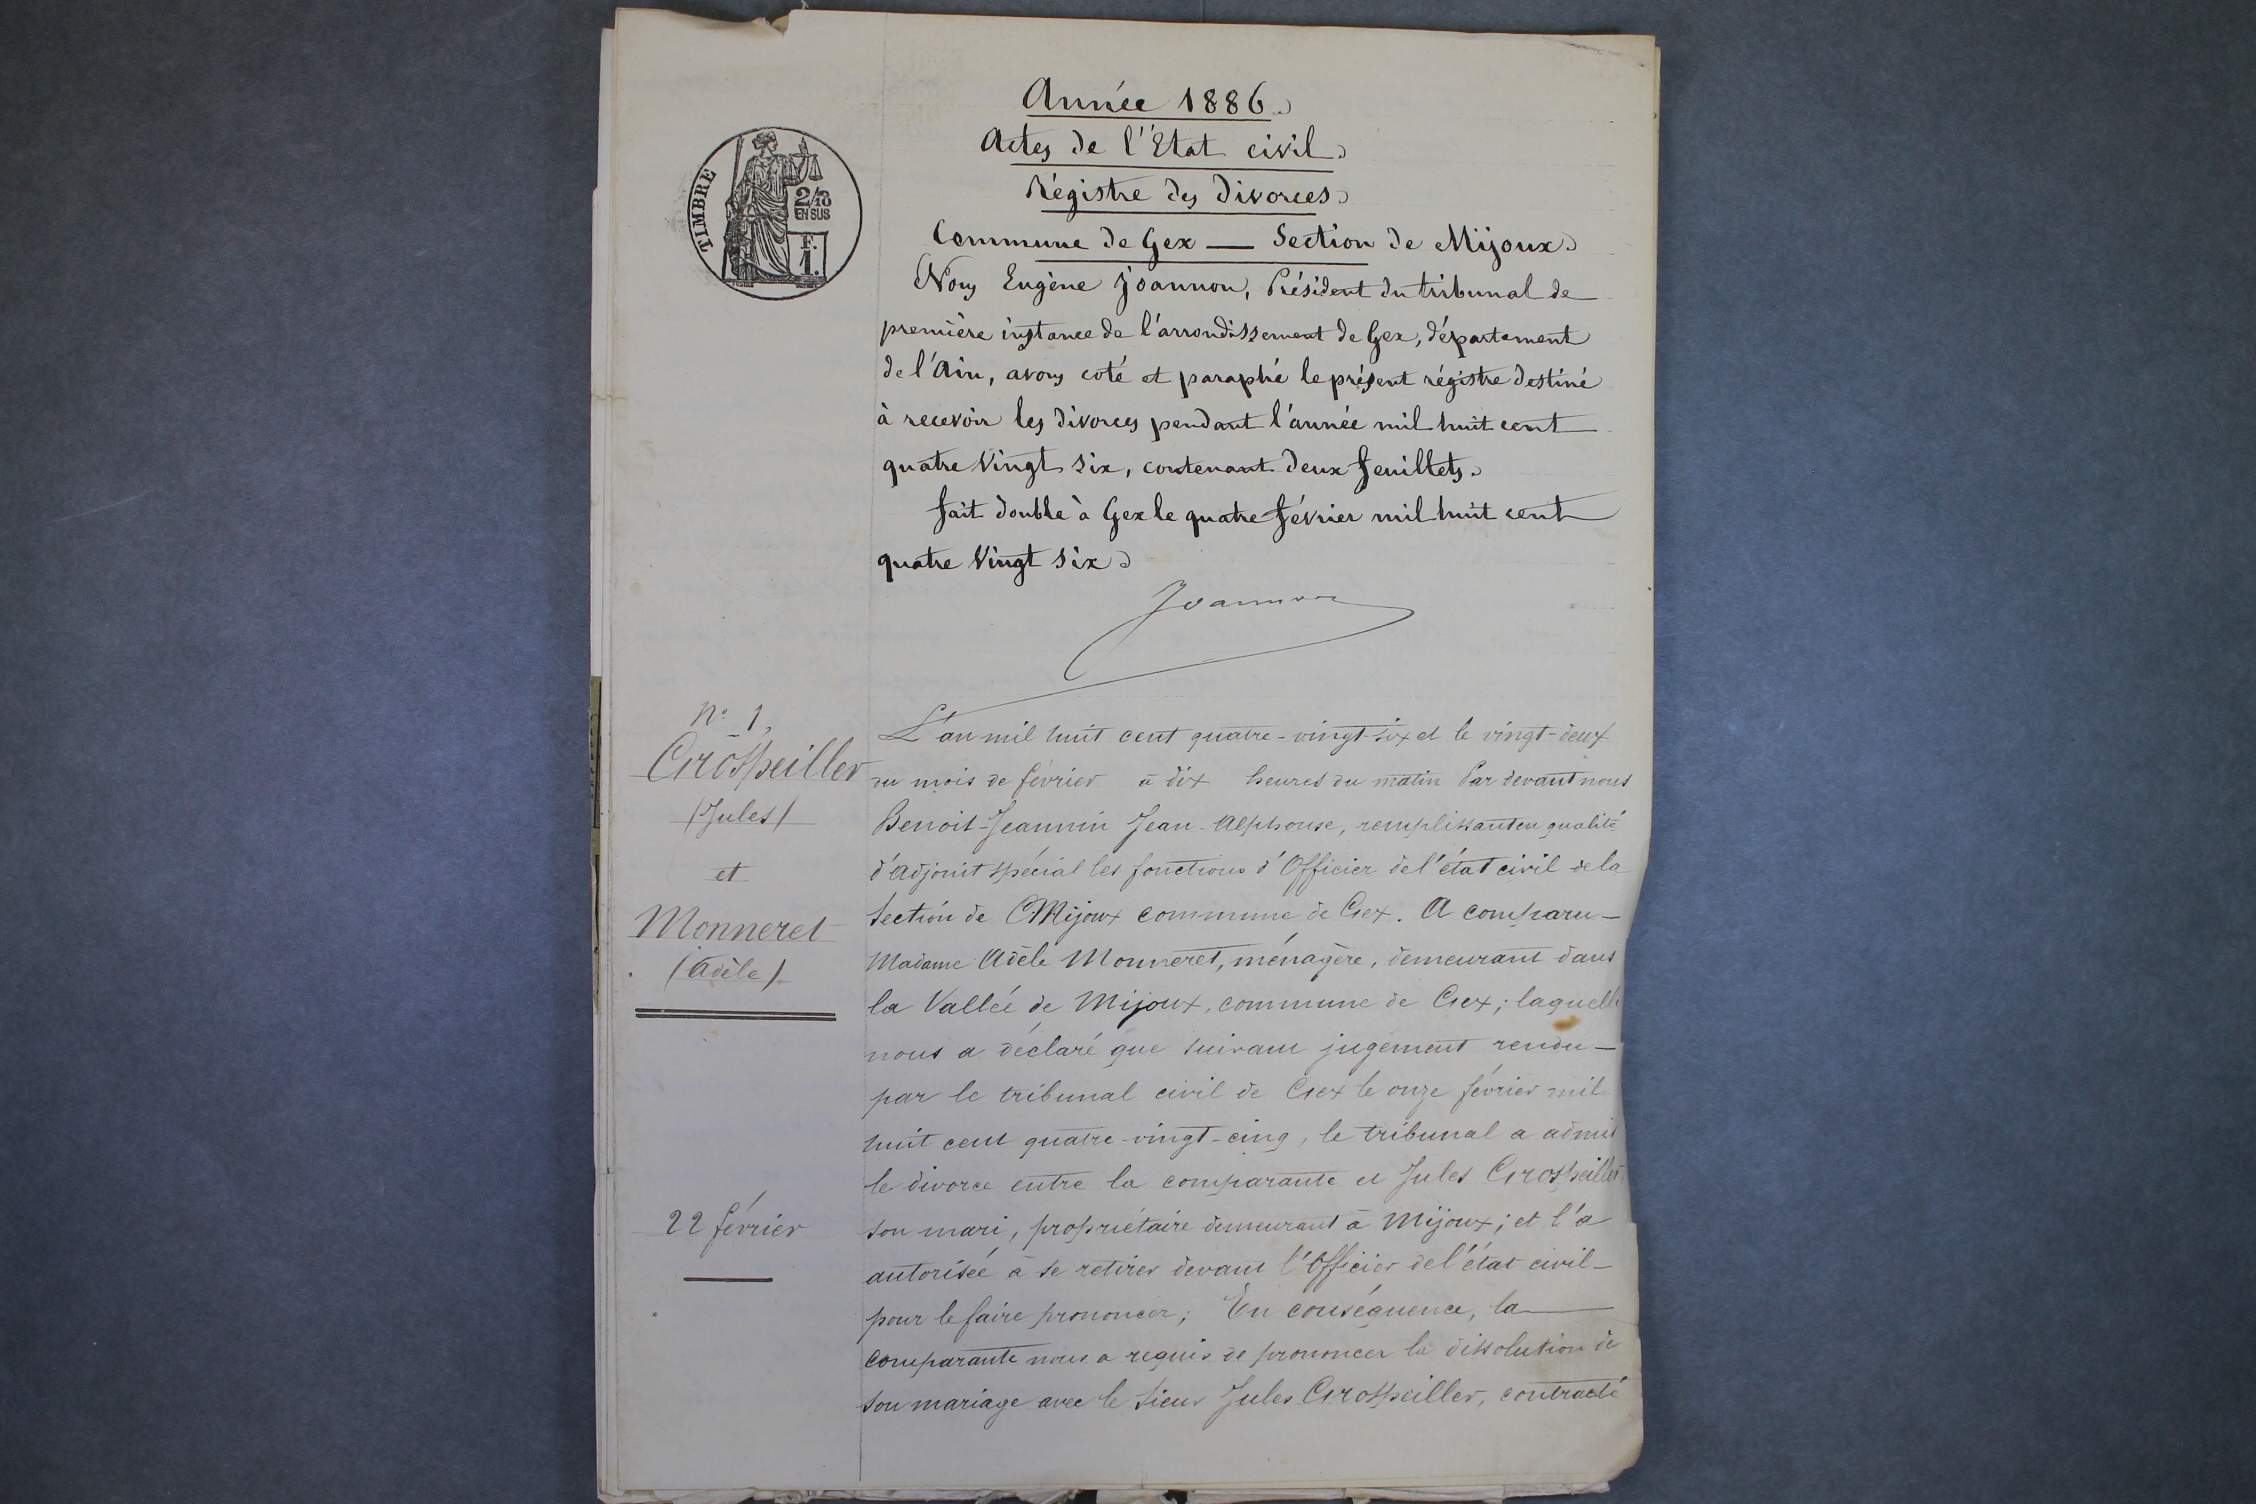 Année 1886
Actes de l'Etat civil
Régistre des Divorces
Commune de Gex — Section de Mijoux
TIMBRE
2/10
EN SUS
F.
1.
Nous Eugène Joannon, Président du tribunal de
première instance de l'arrondissement de Gex, département
de l'Ain, avons coté et paraphé le présent régistre destiné
à recevoir les divorces pendant l'année mil huit cent
quatre vingt six, contenant deux feuillets.
fait double à Gex le quatre février mil huit cent
quatre vingt six
Joannon
N° 1,
Grospeiller
(Jules)
et
Monneret
(Adèle)
22 février
L'an mil huit cent quatre-vingt-six et le vingt-deux
du mois de février à dix heures du matin Par devant nous
Benoit-Jeannin Jean-Alphonse, remplissant en qualité
d'adjoint spécial les fonctions d'Officier de l'état civil de la
Section de Mijoux commune de Gex. A comparu —
Madame Adèle Monneret, ménagère, demeurant dans
la Vallée de Mijoux, commune de Gex; laquelle
nous a déclaré que suivant jugement rendu —
par le tribunal civil de Gex le onze février mil
huit cent quatre-vingt-cinq, le tribunal a admis
le divorce entre la comparante et Jules Grospeiller
son mari, propriétaire demeurant à Mijoux; et l'a
autorisée à se retirer devant l'Officier de l'état civil —
pour le faire prononcer; En conséquence, la —
comparante nous a requis de prononcer la dissolution de
son mariage avec le sieur Jules Grospeiller, contracté